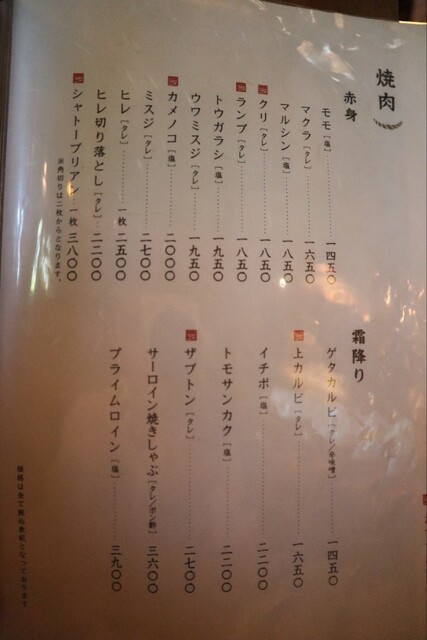 焼肉
赤身
モモ［塩］ 一四五〇
マクラ［タレ］ 一六五〇
マルシン［塩］ 一八五〇
クリ［タレ］ 一八五〇
ランプ［タレ］ 一八五〇
トウガラシ［塩］ 一九五〇
ウワミスジ［タレ］ 一九五〇
カメノコ［塩］ 二〇〇〇
ミスジ［タレ］ 二七〇〇
ヒレ［タレ］ 一枚 二五〇〇
ヒレ切り落とし［タレ］ 二二〇〇
シャトーブリアン 一枚 三八〇〇
※角切りは二枚からとなります。
霜降り
ゲタカルビ［タレ／辛味噌］ 一四五〇
上カルビ［タレ］ 一六五〇
イチボ［塩］ 二二〇〇
トモサンカク［塩］ 二二〇〇
ザブトン［タレ］ 二七〇〇
サーロイン焼きしゃぶ［タレ／ポン酢］ 三六〇〇
プライムロイン［塩］ 三九〇〇
価格は全て税込表記となっております